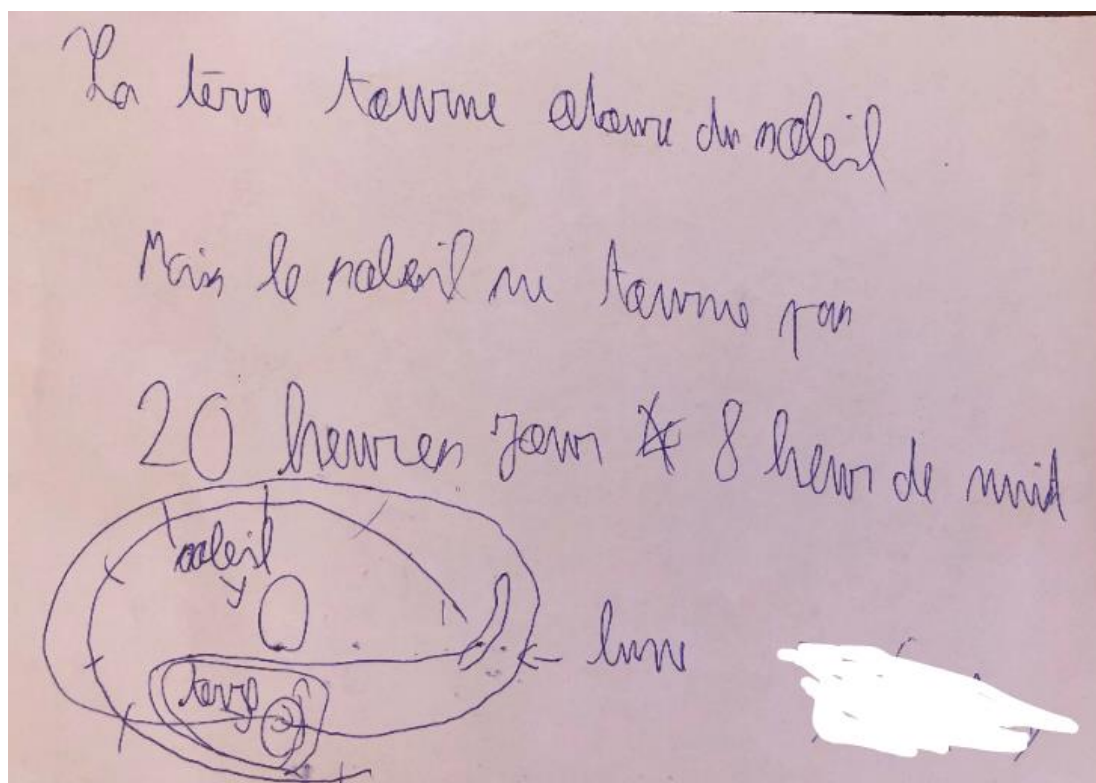 La téro tourne atoure du soleil
Mais le soleil ne tourne pas
20 heures jour 8 heur de nuid
soleil
lune